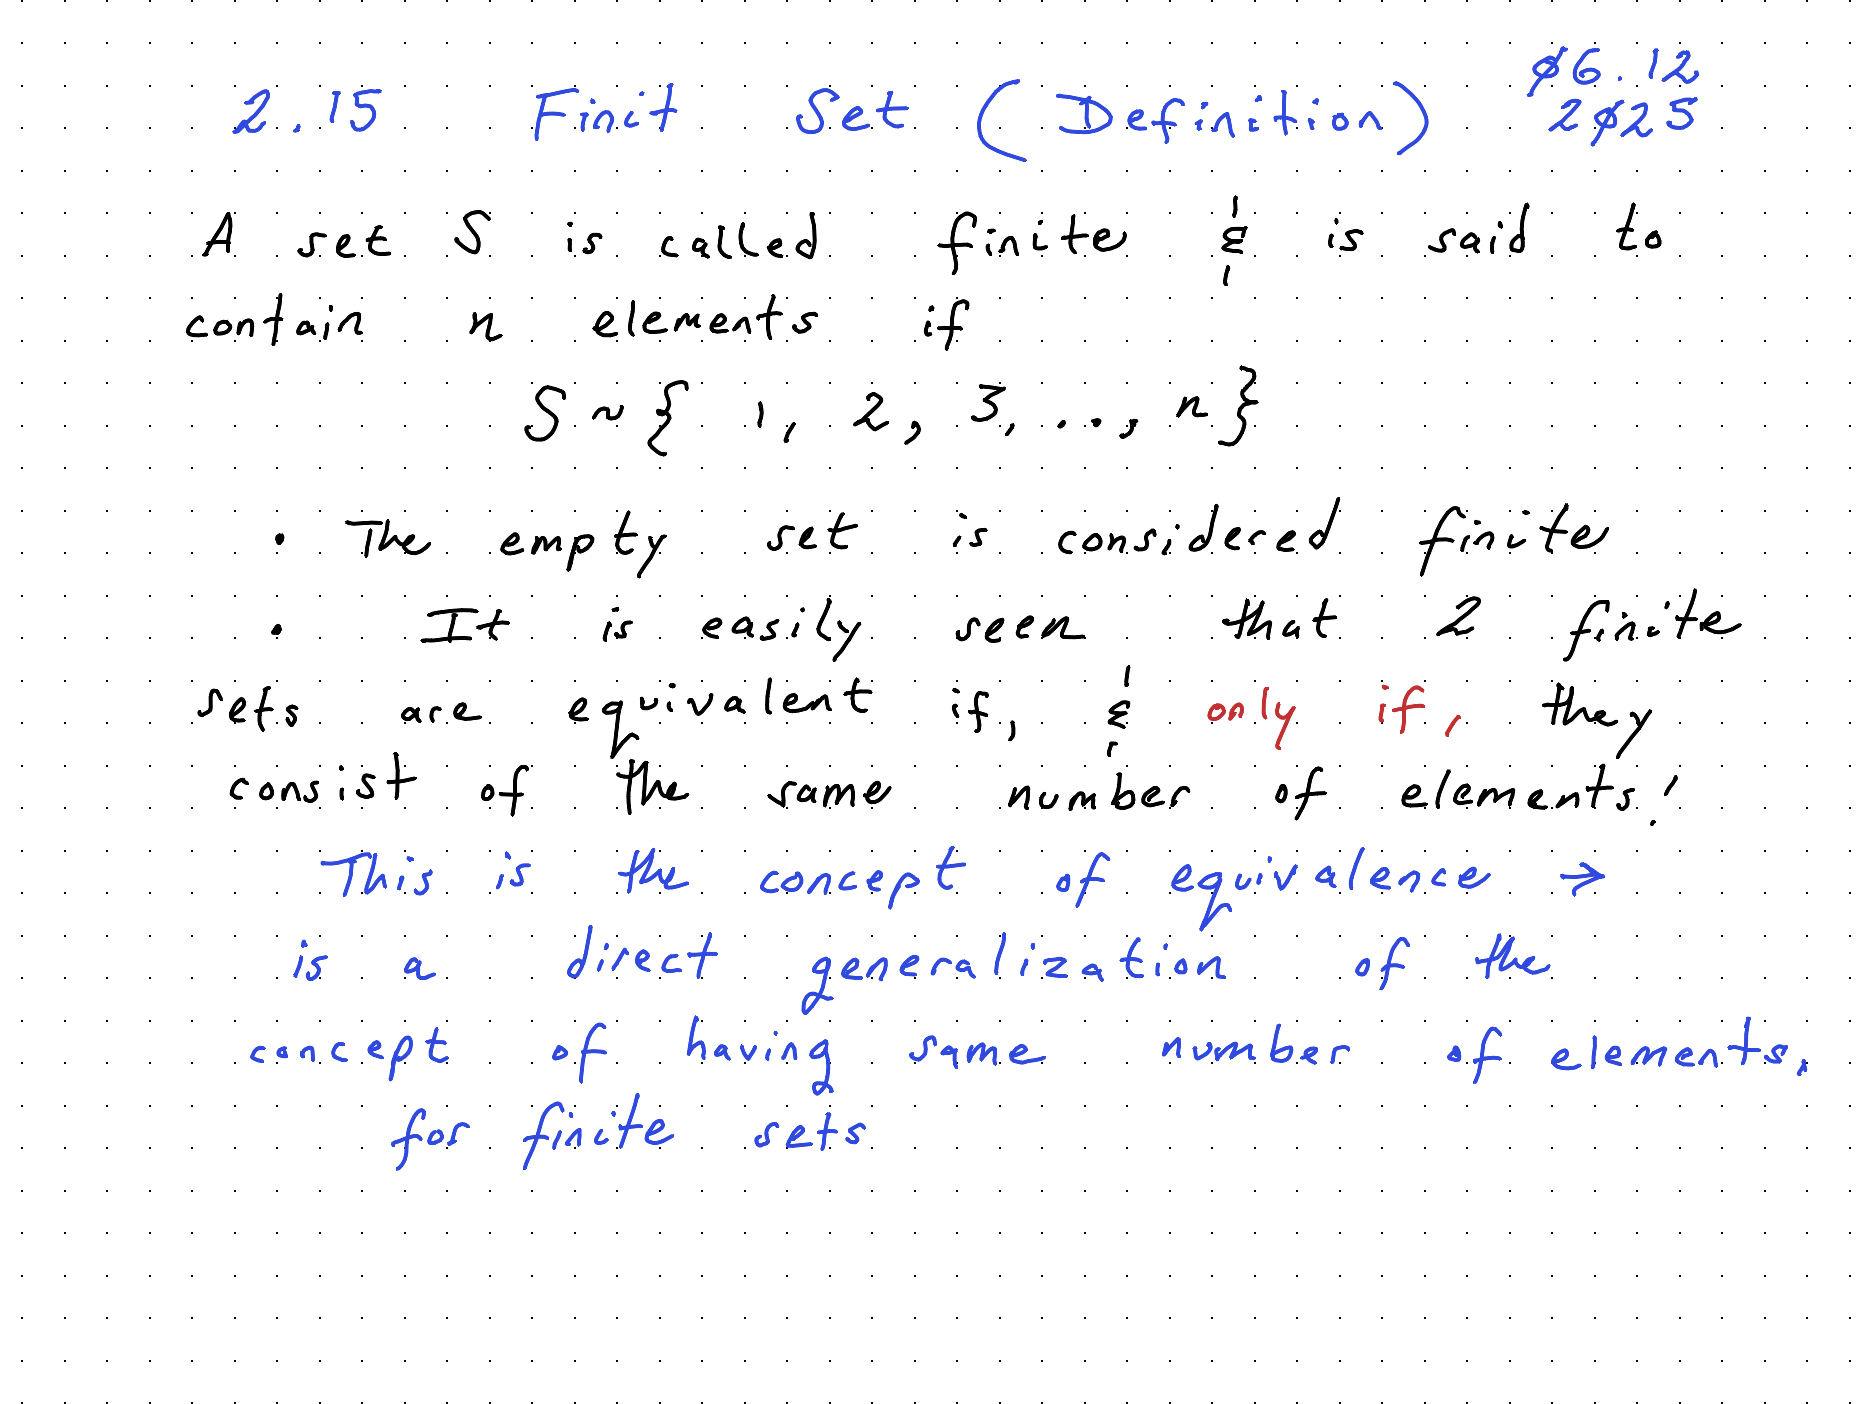 2.15 Finit Set (Definition) ø6.12
2ø25
A set S is called finite & is said to
contain n elements if
S ~ { 1, 2, 3, ..., n }
• The empty set is considered finite
• It is easily seen that 2 finite
sets are equivalent if, & only if, they
consist of the same number of elements!
This is the concept of equivalence →
is a direct generalization of the
concept of having same number of elements,
for finite sets